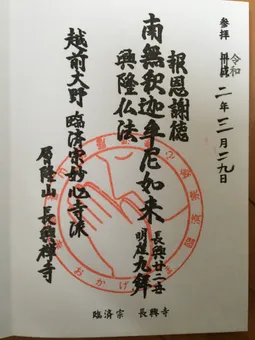 参拝 令和二年三月二九日
報恩謝徳
南無釈迦牟尼如来
興隆仏法
長興廿二世
越前大野 臨済宗妙心寺派
隆山 長興禅寺
臨済宗 長興寺
おかげ